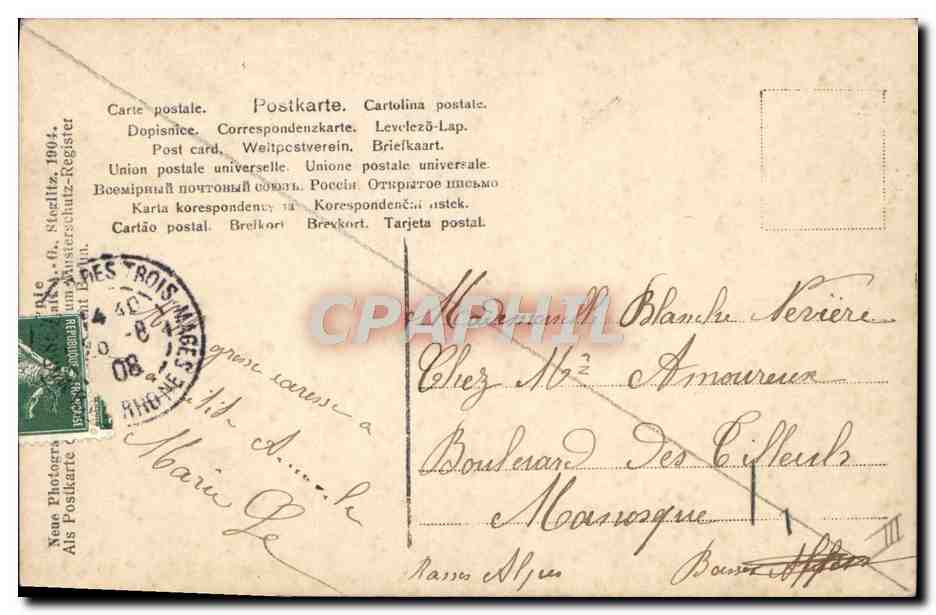 Carte postale. Postkarte. Cartolina postale.
Dopisnice. Correspondenzkarte. Levelezö-Lap.
Post card. Weltpostverein. Briefkaart.
Union postale universelle. Unione postale universale.
Всемірный почтовый союзъ. Россія. Открытое письмо
Karta korespondency Korespondenční lístek.
Cartão postal. Brefkort Brevkort. Tarjeta postal.
Neue Photogra A.-G., Steglitz, 1904.
Als Postkarte Musterschutz-Register
DES TROIS MAGES
4 40
-8
08
RHONE
REPUBLIQUE FRANÇAISE
CPAPHIL
grosse caresse a
Marie
Mademoiselle Blanche Nevière
Chez Mr Amoureux
Boulevard des Tilleuls
Manosque
Basses Alpes
Basses Alpes
III